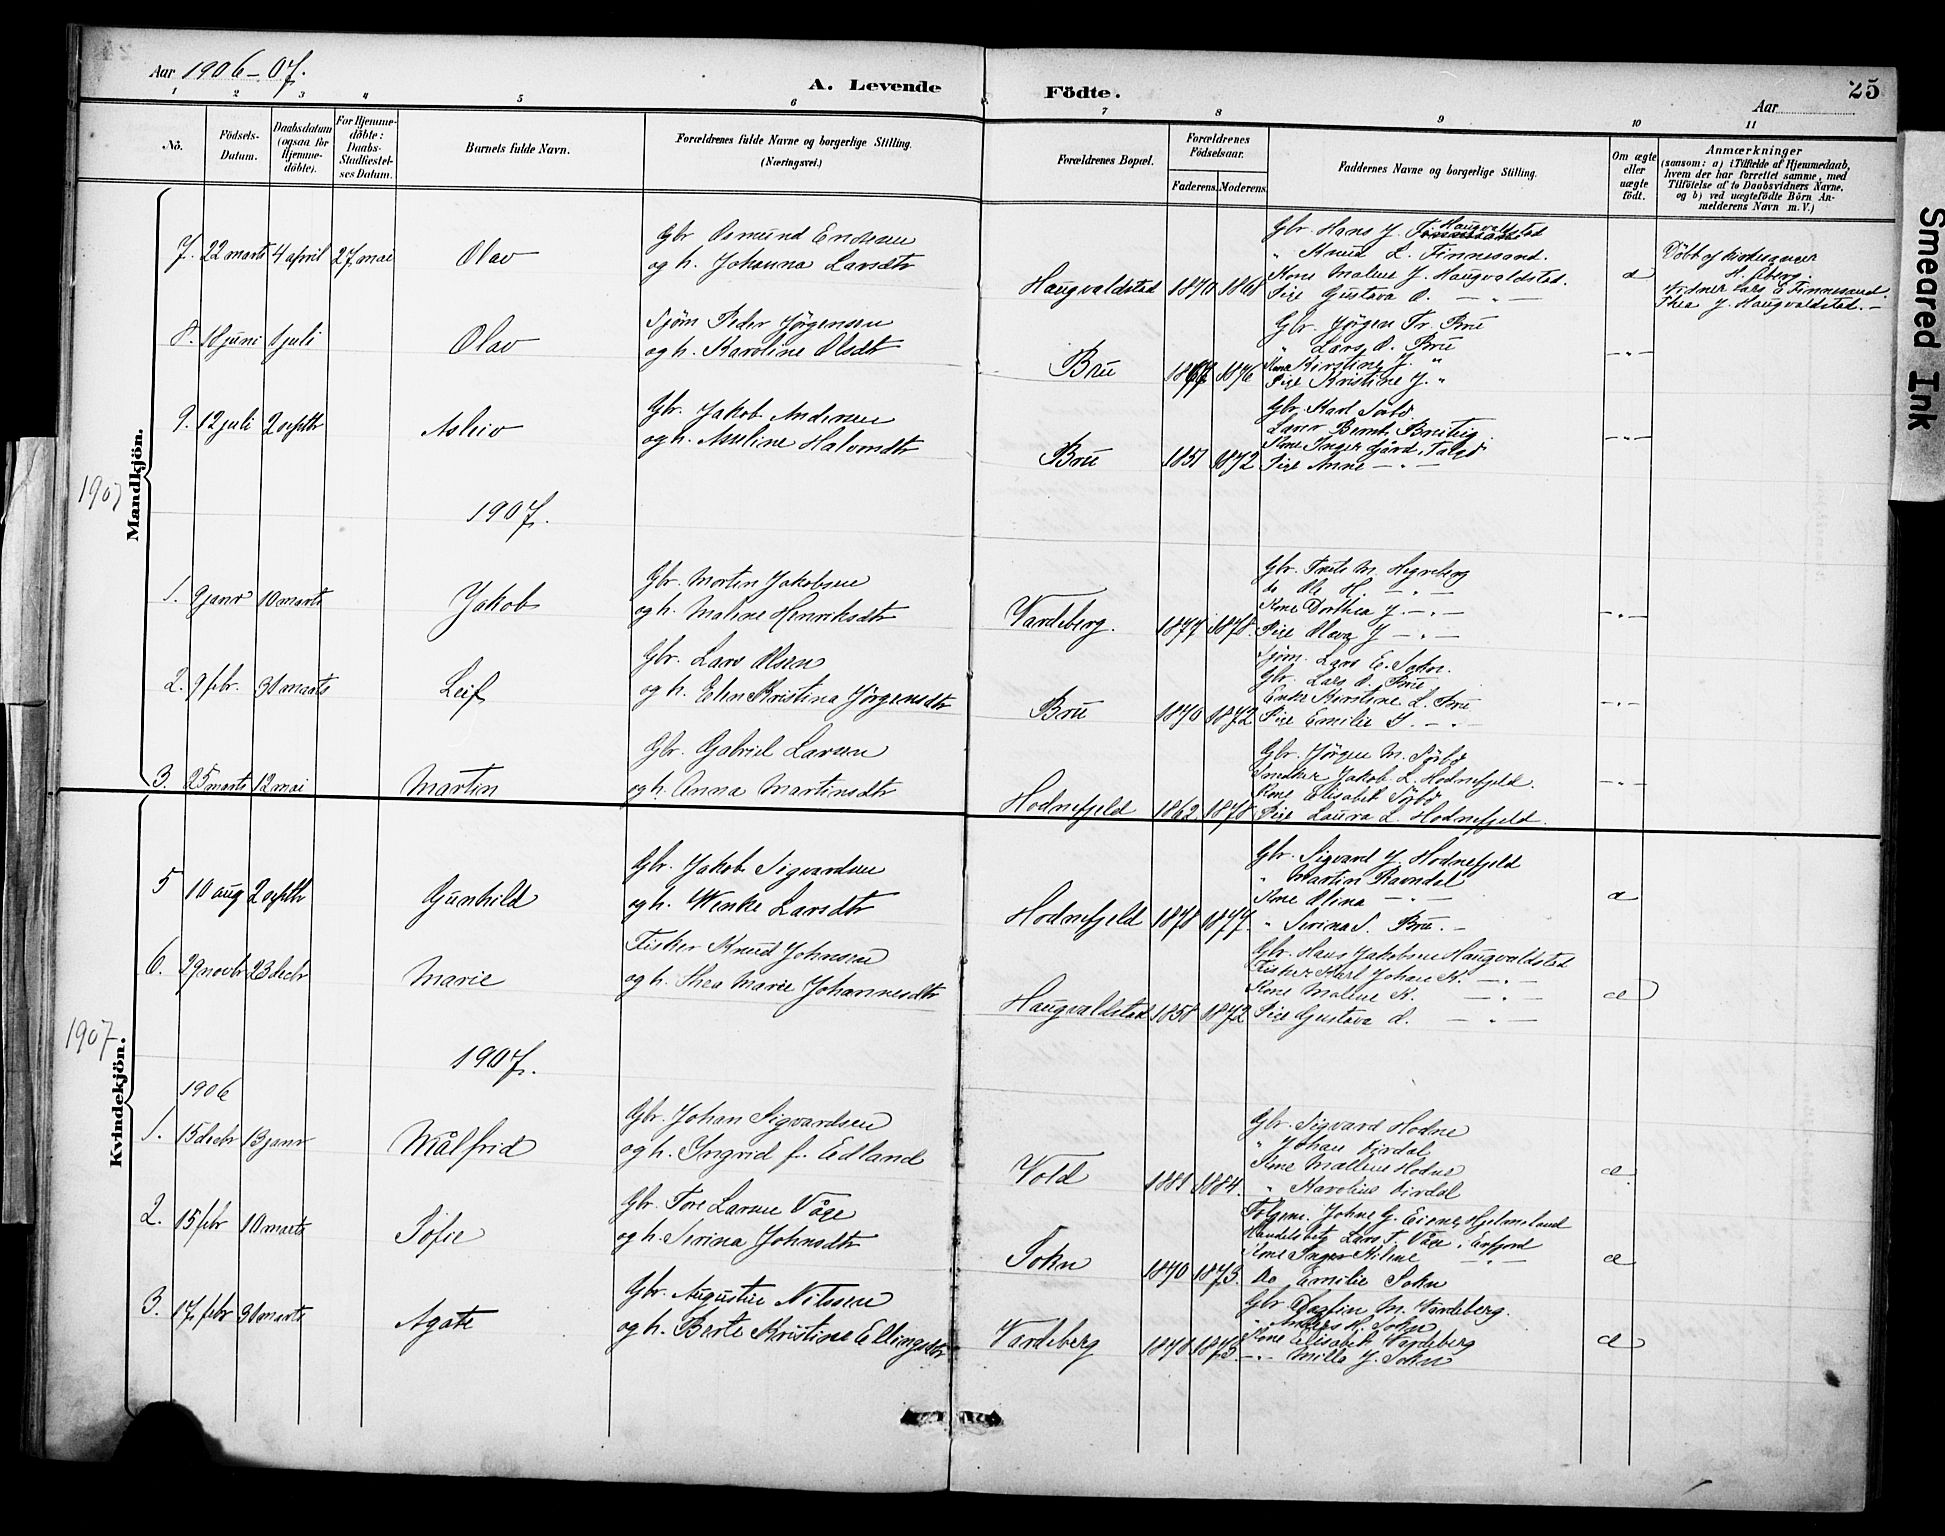 Aar 1906-07. A. Levende Födte. Aar 25
1 2 3 4 5 6 7 8 9 10 11
No. Födsels-Datum. Daabsdatum (ogsaa for Hjemme-döbte). For Hjemme-döbte: Daabs-Stadfæstel-ses Datum. Barnets fulde Navn. Forældrenes fulde Navne og borgerlige Stilling. (Næringsvei.) Forældrenes Bopæl. Forældrenes Födselsaar. Faderens. Moderens. Faddernes Navne og borgerlige Stilling. Om ægte eller uægte födt. Anmærkninger (saasom: a) i Tilfælde af Hjemmedaab, hvem der har forrettet samme, med Tilföielse af to Daabsvidners Navne, og b) ved uægtefödte Börn An-melderens Navn m. V.)
Mandkjön.
7. 22 marts 4 april 27 mai Olav Gbr Osmund Endresen
og h. Johanna Larsdtr Haugvaldstad 1870 1868
Gbr. Hans J. Haugvaldstad
" Knud L. Finnesand.
Kone Malene J. Haugvaldstad.
Pige Gustava O. — " —
Döbt af kirkesanger
H. Åberg.
Vidner Lars E Finnesand.
Thea J. Haugvaldstad. —
8. 18 juni 1 juli Olav Sjöm Peder Jørgensen
og h. Karoline Olsdtr Bru 1876
Gbr. Jørgen Tr. Bru
" Lars O. Bru
Kone Kirstine J. "
Pige Kristine J. "
— " —
9. 12 juli 2 septbr Asleiv Gbr. Jakob Andersen
og h. Asseline Halvorsdtr Bru 1851 1872
Gbr. Karl Sörbö.
Lærer Bernh. Brusteig.
Kone Inger Gård, Talgö
Pige Anne — " —
— " —
1907
1907.
1. 9 janr 10 marts Jakob Gbr. Morten Jakobsen
og h. Malene Henriksdtr Vardeberg. 1877 1878.
Gbr. Frets M. Hegreberg
do Ole H. — " —
Kone Dorthea J. — " —
Pige Olava J — " —
— " —
2. 9 febr. 30 marts Leif Gbr. Lars Olsen
og h. Elen Kristina Jørgensdtr Bru 1870 1872
Sjöm. Lars E. Sokn.
Gbr. Lars O. Bru
Enke Kirstine L. Bru
Pige Emilie J. — " —
— " —
3. 25 marts 12 mai Martin Gbr. Gabriel Larsen
og h. Anna Martinsdtr Hodnefjeld 1862 1878.
Gbr. Jørgen M. Sörbö
Snedker Jakob L. Hodnefjeld.
Kone Elisabet Sörbö
Pige Laura L. Hodnefjeld.
— " —
Kvindekjön.
5 10 aug 2 septbr Gunhild Gbr. Jakob Sigvardsen
og h. Wenke Larsdtr Hodnefjeld 1878 1877.
Gbr. Sigvard J. Hodnefjeld
" Martin Ravndal
Kone Olina — " —
" Serina S. Bru. —
æ
6. 29 novbr 23 decbr Marie Fisker Knud Johnsen
og h. Thea Marie Johannesdtr Haugvaldstad 1858 1872
Gbr. Hans Jakobsen Haugvaldstad
Fisker Karl Johan K. — " —
Kone Malene K. — " —
Pige Gustava O. — " —
æ
1907
1907.
1906
1. 15 decbr 13 janr Målfrid Gbr. Johan Sigvardsen
og h. Ingrid f. Edland Vold 1881 1884.
Gbr. Sigvard Hodne
" Johan Dirdal
Kone Mallene Hodne
" Karolius Dirdal
æ
2. 15 febr 10 marts Sofie Gbr. Tore Larsen Våge
og h. Serina Johnsdtr Sokn 1870 1873.
Johne G. Eiene, Hjelmeland
Handelsbetj. Lars T. Våge i Erfjord
Kone Inger Helene — " —
Do Emilie Sokn
æ
3. 17 febr 30 marts Agate Gbr. Augustin Nilssen
og h. Berte Kristine Ellingsdtr Vardeberg 1870 1873.
Gbr M. Vardeberg.
" Anders H. Sokn
Kone Elisabet Vardeberg
— " — Milla J. Sokn
æ
Smeared Ink